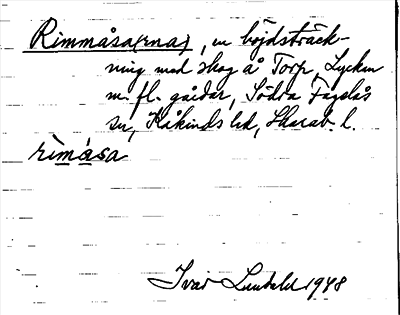 Rimmåsa(rna), en höjdsträck-
ning med skog å Torp, Lyckan
m. fl. gårdar, Södra Fågelås
sn, Kåkinds hd, Skarab. l.
rimåsa
Ivar Lundahl 1948